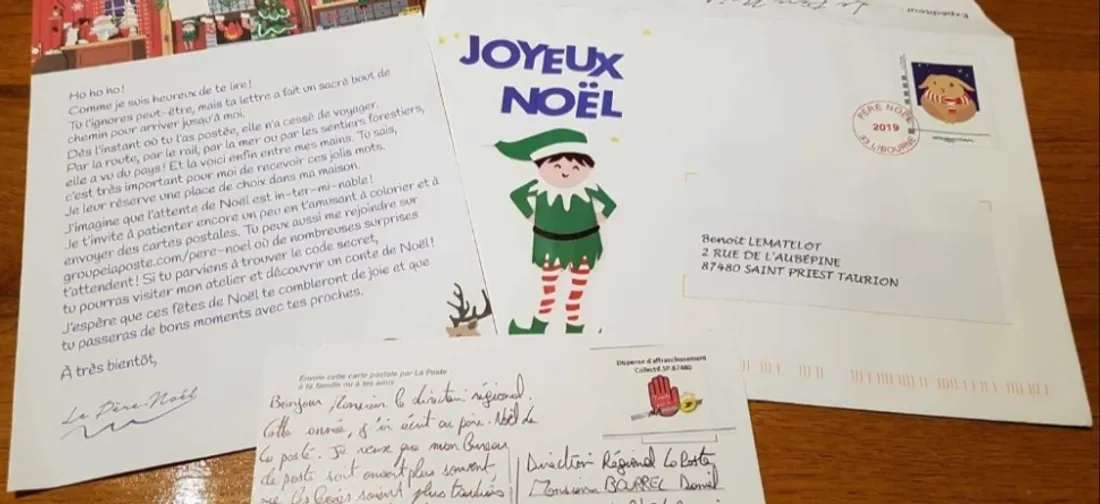 Ho ho ho!
Comme je suis heureux de te lire!
Tu l'ignores peut-être, mais ta lettre a fait un sacré bout de
chemin pour arriver jusqu'à moi.
Dès l'instant où tu l'as postée, elle n'a cessé de voyager.
Par la route, par le rail, par la mer ou par les sentiers forestiers,
elle a vu du pays! Et la voici enfin entre mes mains. Tu sais,
c'est très important pour moi de recevoir ces jolis mots.
Je leur réserve une place de choix dans ma maison.
J'imagine que l'attente de Noël est in-ter-mi-nable!
Je t'invite à patienter encore un peu en t'amusant à colorier et à
envoyer des cartes postales. Tu peux aussi me rejoindre sur
groupelaposte.com/pere-noel où de nombreuses surprises
t'attendent! Si tu parviens à trouver le code secret,
tu pourras visiter mon atelier et découvrir un conte de Noël!
J'espère que ces fêtes de Noël te combleront de joie et que
tu passeras de bons moments avec tes proches.
À très bientôt,
Le Père Noël
JOYEUX
NOËL
Expéditeur
Le Père Noël
PERE NOEL
2019
33 LIBOURNE
Benoît LEMATELOT
2 RUE DE L'AUBÉPINE
87480 SAINT PRIEST TAURION
Envoie cette carte postale par La Poste
à ta famille ou à tes amis
Bonjour Monsieur le directeur régional.
Cette année, j'ai écrit au père-Noël de
la poste. Je veux que mon bureau
de poste soit ouvert plus souvent,
que les lettres soient plus
Dispense d'affranchissement
Collectif.SP.87480
Direction Régional La Poste
Monsieur BOURREL Daniel